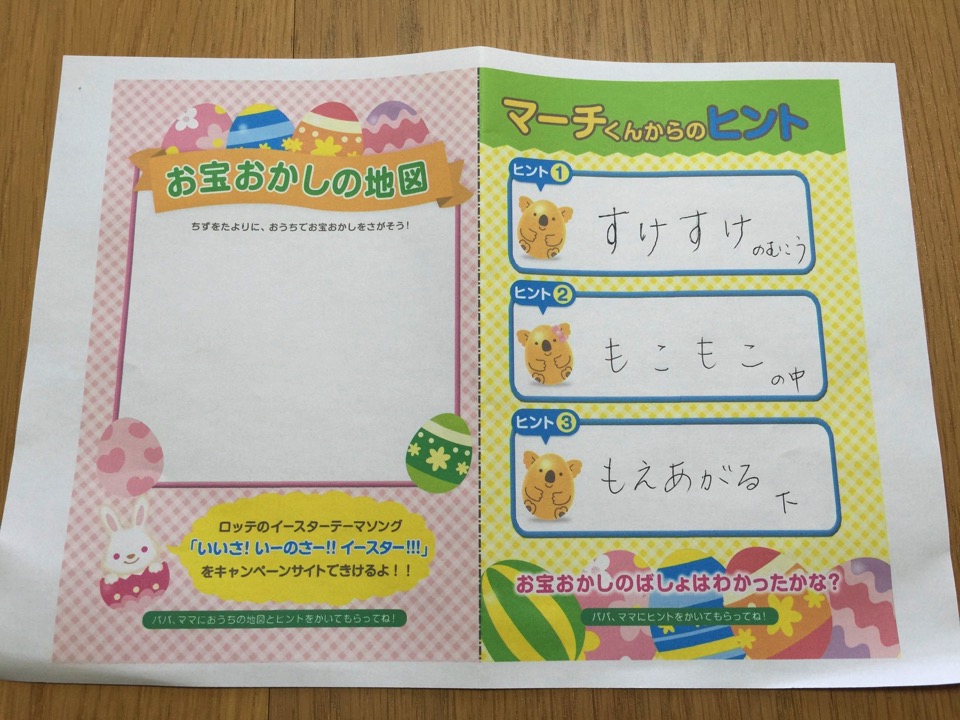 お宝おかしの地図
ちずをたよりに、おうちでお宝おかしをさがそう!
ロッテのイースターテーマソング
「いいさ! いーのさー!! イースター!!!」
をキャンペーンサイトできけるよ!!
パパ、ママにおうちの地図とヒントをかいてもらってね!
マーチくんからのヒント
ヒント1
すけすけのむこう
ヒント2
もこもこの中
ヒント3
もえあがる下
お宝おかしのばしょはわかったかな?
パパ、ママにヒントをかいてもらってね!